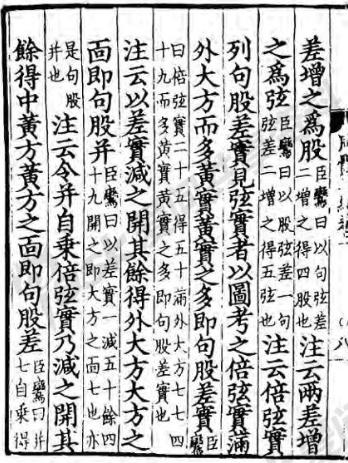 差增之爲股臣鸞曰以句弦差二增之得四股也注云兩差增
之爲弦臣鸞曰以股弦差一句弦差二增之得五弦也注云倍弦實
列句股差實見弦實者以圖考之倍弦實滿
外大方而多黃實黃實之多即句股差實臣鸞
曰倍弦實二十五得五十滿外大方七七四十九而多黃實黃實之多即句股差實也
注云以差實減之開其餘得外大方大方之
面即句股并臣鸞曰以差實一減五十餘四十九開之即大方之面七也亦
是句股并也注云令并自乘倍弦實乃減之開其
餘得中黃方黃方之面即句股差臣鸞曰并七自乘得